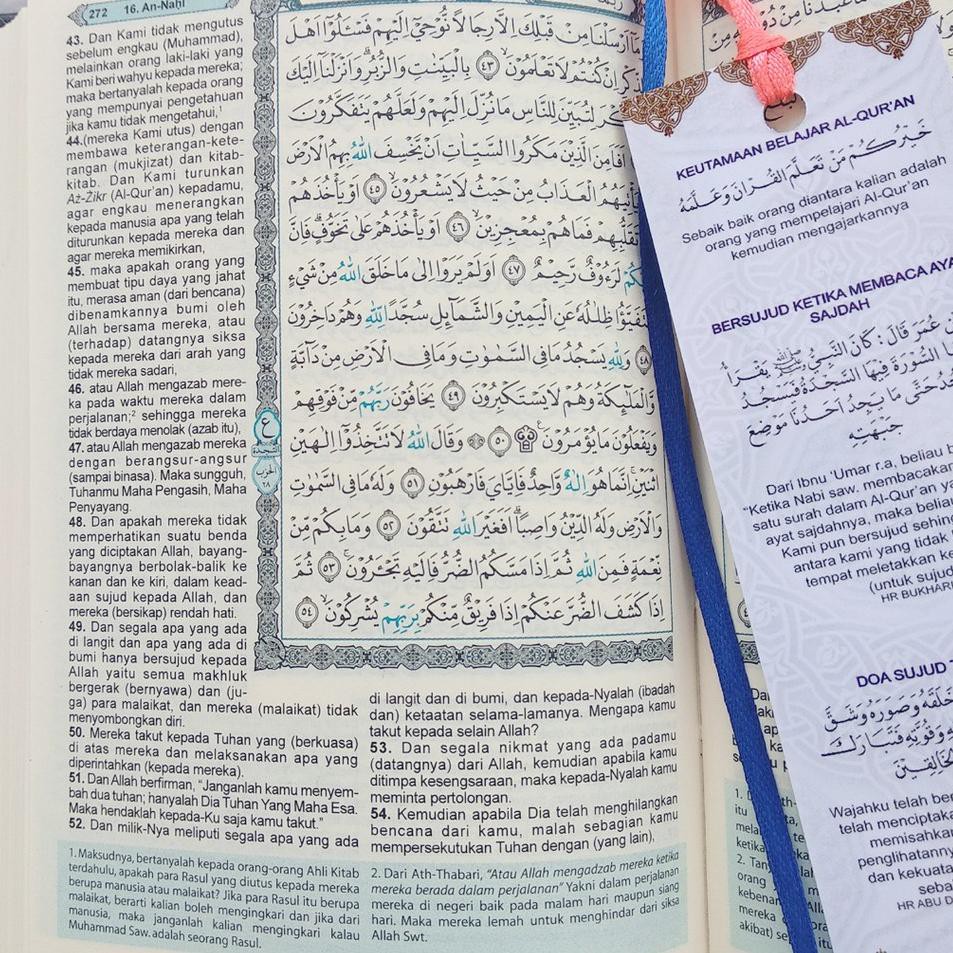 272
16. An-Naḥl
43. Dan Kami tidak mengutus
sebelum engkau (Muhammad),
melainkan orang laki-laki yang
Kami beri wahyu kepada mereka;
maka bertanyalah kepada orang
yang mempunyai pengetahuan
jika kamu tidak mengetahui,¹
44.(mereka Kami utus) dengan
membawa keterangan-kete-
rangan (mukjizat) dan kitab-
kitab. Dan Kami turunkan
Aż-Żikr (Al-Qur'an) kepadamu,
agar engkau menerangkan
kepada manusia apa yang telah
diturunkan kepada mereka dan
agar mereka memikirkan,
45. maka apakah orang yang
membuat tipu daya yang jahat
itu, merasa aman (dari bencana)
dibenamkannya bumi oleh
Allah bersama mereka, atau
(terhadap) datangnya siksa
kepada mereka dari arah yang
tidak mereka sadari,
46. atau Allah mengazab mere-
ka pada waktu mereka dalam
perjalanan;² sehingga mereka
tidak berdaya menolak (azab itu),
47. atau Allah mengazab mereka
dengan berangsur-angsur
(sampai binasa). Maka sungguh,
Tuhanmu Maha Pengasih, Maha
Penyayang.
48. Dan apakah mereka tidak
memperhatikan suatu benda
yang diciptakan Allah, bayang-
bayangnya berbolak-balik ke
kanan dan ke kiri, dalam kead-
aan sujud kepada Allah, dan
mereka (bersikap) rendah hati.
49. Dan segala apa yang ada
di langit dan apa yang ada di
bumi hanya bersujud kepada
Allah yaitu semua makhluk
bergerak (bernyawa) dan (ju-
ga) para malaikat, dan mereka (malaikat) tidak
menyombongkan diri.
50. Mereka takut kepada Tuhan yang (berkuasa)
di atas mereka dan melaksanakan apa yang
diperintahkan (kepada mereka).
51. Dan Allah berfirman, "Janganlah kamu menyem-
bah dua tuhan; hanyalah Dia Tuhan Yang Maha Esa.
Maka hendaklah kepada-Ku saja kamu takut."
52. Dan milik-Nya meliputi segala apa yang ada
di langit dan di bumi, dan kepada-Nyalah (ibadah
dan) ketaatan selama-lamanya. Mengapa kamu
takut kepada selain Allah?
53. Dan segala nikmat yang ada padamu
(datangnya) dari Allah, kemudian apabila kamu
ditimpa kesengsaraan, maka kepada-Nyalah kamu
meminta pertolongan.
54. Kemudian apabila Dia telah menghilangkan
bencana dari kamu, malah sebagian kamu
mempersekutukan Tuhan dengan (yang lain).
1. Maksudnya, bertanyalah kepada orang-orang Ahli Kitab
terdahulu, apakah para Rasul yang diutus kepada mereka
berupa manusia atau malaikat? Jika para Rasul itu berupa
malaikat, berarti kalian boleh mengingkari dan jika dari
manusia, maka janganlah kalian mengingkari kalau
Muhammad Saw. adalah seorang Rasul.
2. Dari Ath-Thabari, "Atau Allah mengadzab mereka ketika
mereka berada dalam perjalanan" Yakni dalam perjalanan
mereka di negeri baik pada malam hari maupun siang
hari. Maka mereka lemah untuk menghindar dari siksa
Allah Swt.
مَآ اَرْسَلْنَا مِنْ قَبْلِكَ اِلَّا رِجَالًا نُّوْحِيْٓ اِلَيْهِمْ فَسْـَٔلُوْٓا اَهْلَ
الذِّكْرِ اِنْ كُنْتُمْ لَا تَعْلَمُوْنَۙ ٤٣ بِالْبَيِّنٰتِ وَالزُّبُرِۗ وَاَنْزَلْنَآ اِلَيْكَ
لِتُبَيِّنَ لِلنَّاسِ مَا نُزِّلَ اِلَيْهِمْ وَلَعَلَّهُمْ يَتَفَكَّرُوْنَ
الَّذِيْنَ مَكَرُوا السَّيِّاٰتِ اَنْ يَّخْسِفَ اللّٰهُ بِهِمُ الْاَرْضَ
الْعَذَابُ مِنْ حَيْثُ لَا يَشْعُرُوْنَۙ ٤٥ اَوْ يَأْخُذَهُمْ
تَقَلُّبِهِمْ فَمَا هُمْ بِمُعْجِزِيْنَۙ ٤٦ اَوْ يَأْخُذَهُمْ عَلٰى تَخَوُّفٍۗ فَاِنَّ
لَرَءُوْفٌ رَّحِيْمٌ ٤٧ اَوَلَمْ يَرَوْا اِلٰى مَا خَلَقَ اللّٰهُ مِنْ شَيْءٍ
يَّتَفَيَّؤُا ظِلٰلُهٗ عَنِ الْيَمِيْنِ وَالشَّمَاۤىِٕلِ سُجَّدًا لِّلّٰهِ وَهُمْ دَاخِرُوْنَ
٤٨ وَلِلّٰهِ يَسْجُدُ مَا فِى السَّمٰوٰتِ وَمَا فِى الْاَرْضِ مِنْ دَاۤبَّةٍ
وَّالْمَلٰۤىِٕكَةُ وَهُمْ لَا يَسْتَكْبِرُوْنَ ٤٩ يَخَافُوْنَ رَبَّهُمْ مِّنْ فَوْقِهِمْ
وَيَفْعَلُوْنَ مَا يُؤْمَرُوْنَ ۩ ٥٠ وَقَالَ اللّٰهُ لَا تَتَّخِذُوْٓا اِلٰهَيْنِ
اثْنَيْنِۚ اِنَّمَا هُوَ اِلٰهٌ وَّاحِدٌ فَاِيَّايَ فَارْهَبُوْنِ ٥١ وَلَهٗ مَا فِى السَّمٰوٰتِ
وَالْاَرْضِ وَلَهُ الدِّيْنُ وَاصِبًاۗ اَفَغَيْرَ اللّٰهِ تَتَّقُوْنَ ٥٢ وَمَا بِكُمْ مِّنْ
نِّعْمَةٍ فَمِنَ اللّٰهِ ثُمَّ اِذَا مَسَّكُمُ الضُّرُّ فَاِلَيْهِ تَجْـَٔرُوْنَۚ ٥٣ ثُمَّ
اِذَا كَشَفَ الضُّرَّ عَنْكُمْ اِذَا فَرِيْقٌ مِّنْكُمْ بِرَبِّهِمْ يُشْرِكُوْنَۙ ٥٤
ع
السجدة
الحزب
٢٨
KEUTAMAAN BELAJAR AL-QUR'AN
خَيْرُكُمْ مَنْ تَعَلَّمَ الْقُرْاٰنَ وَعَلَّمَهُ
Sebaik baik orang diantara kalian adalah
orang yang mempelajari Al-Qur'an
kemudian mengajarkannya
BERSUJUD KETIKA MEMBACA AYA
SAJDAH
عُمَرَ قَالَ : كَانَ النَّبِيُّ ﷺ يَقْرَأُ
السُّوْرَةَ فِيْهَا السَّجْدَةُ فَيَسْجُدُ
حَتَّى مَا يَجِدُ اَحَدُنَا مَوْضِعَ
جَبْهَتِهِ
Dari Ibnu 'Umar r.a, beliau b
"Ketika Nabi saw. membacakan
satu surah dalam Al-Qur'an ya
ayat sajdahnya, maka belia
Kami pun bersujud sehing
antara kami yang tidak
tempat meletakkan ke
(untuk sujud
HR BUKHARI
DOA SUJUD T
خَلَقَهُ وَصَوَّرَهُ وَشَقَّ
وَقُوَّتِهِ فَتَبَارَكَ
الْخَالِقِيْنَ
Wajahku telah ber
telah menciptaka
memisahkan
penglihatannya
dan kekuata
seba
HR ABU D